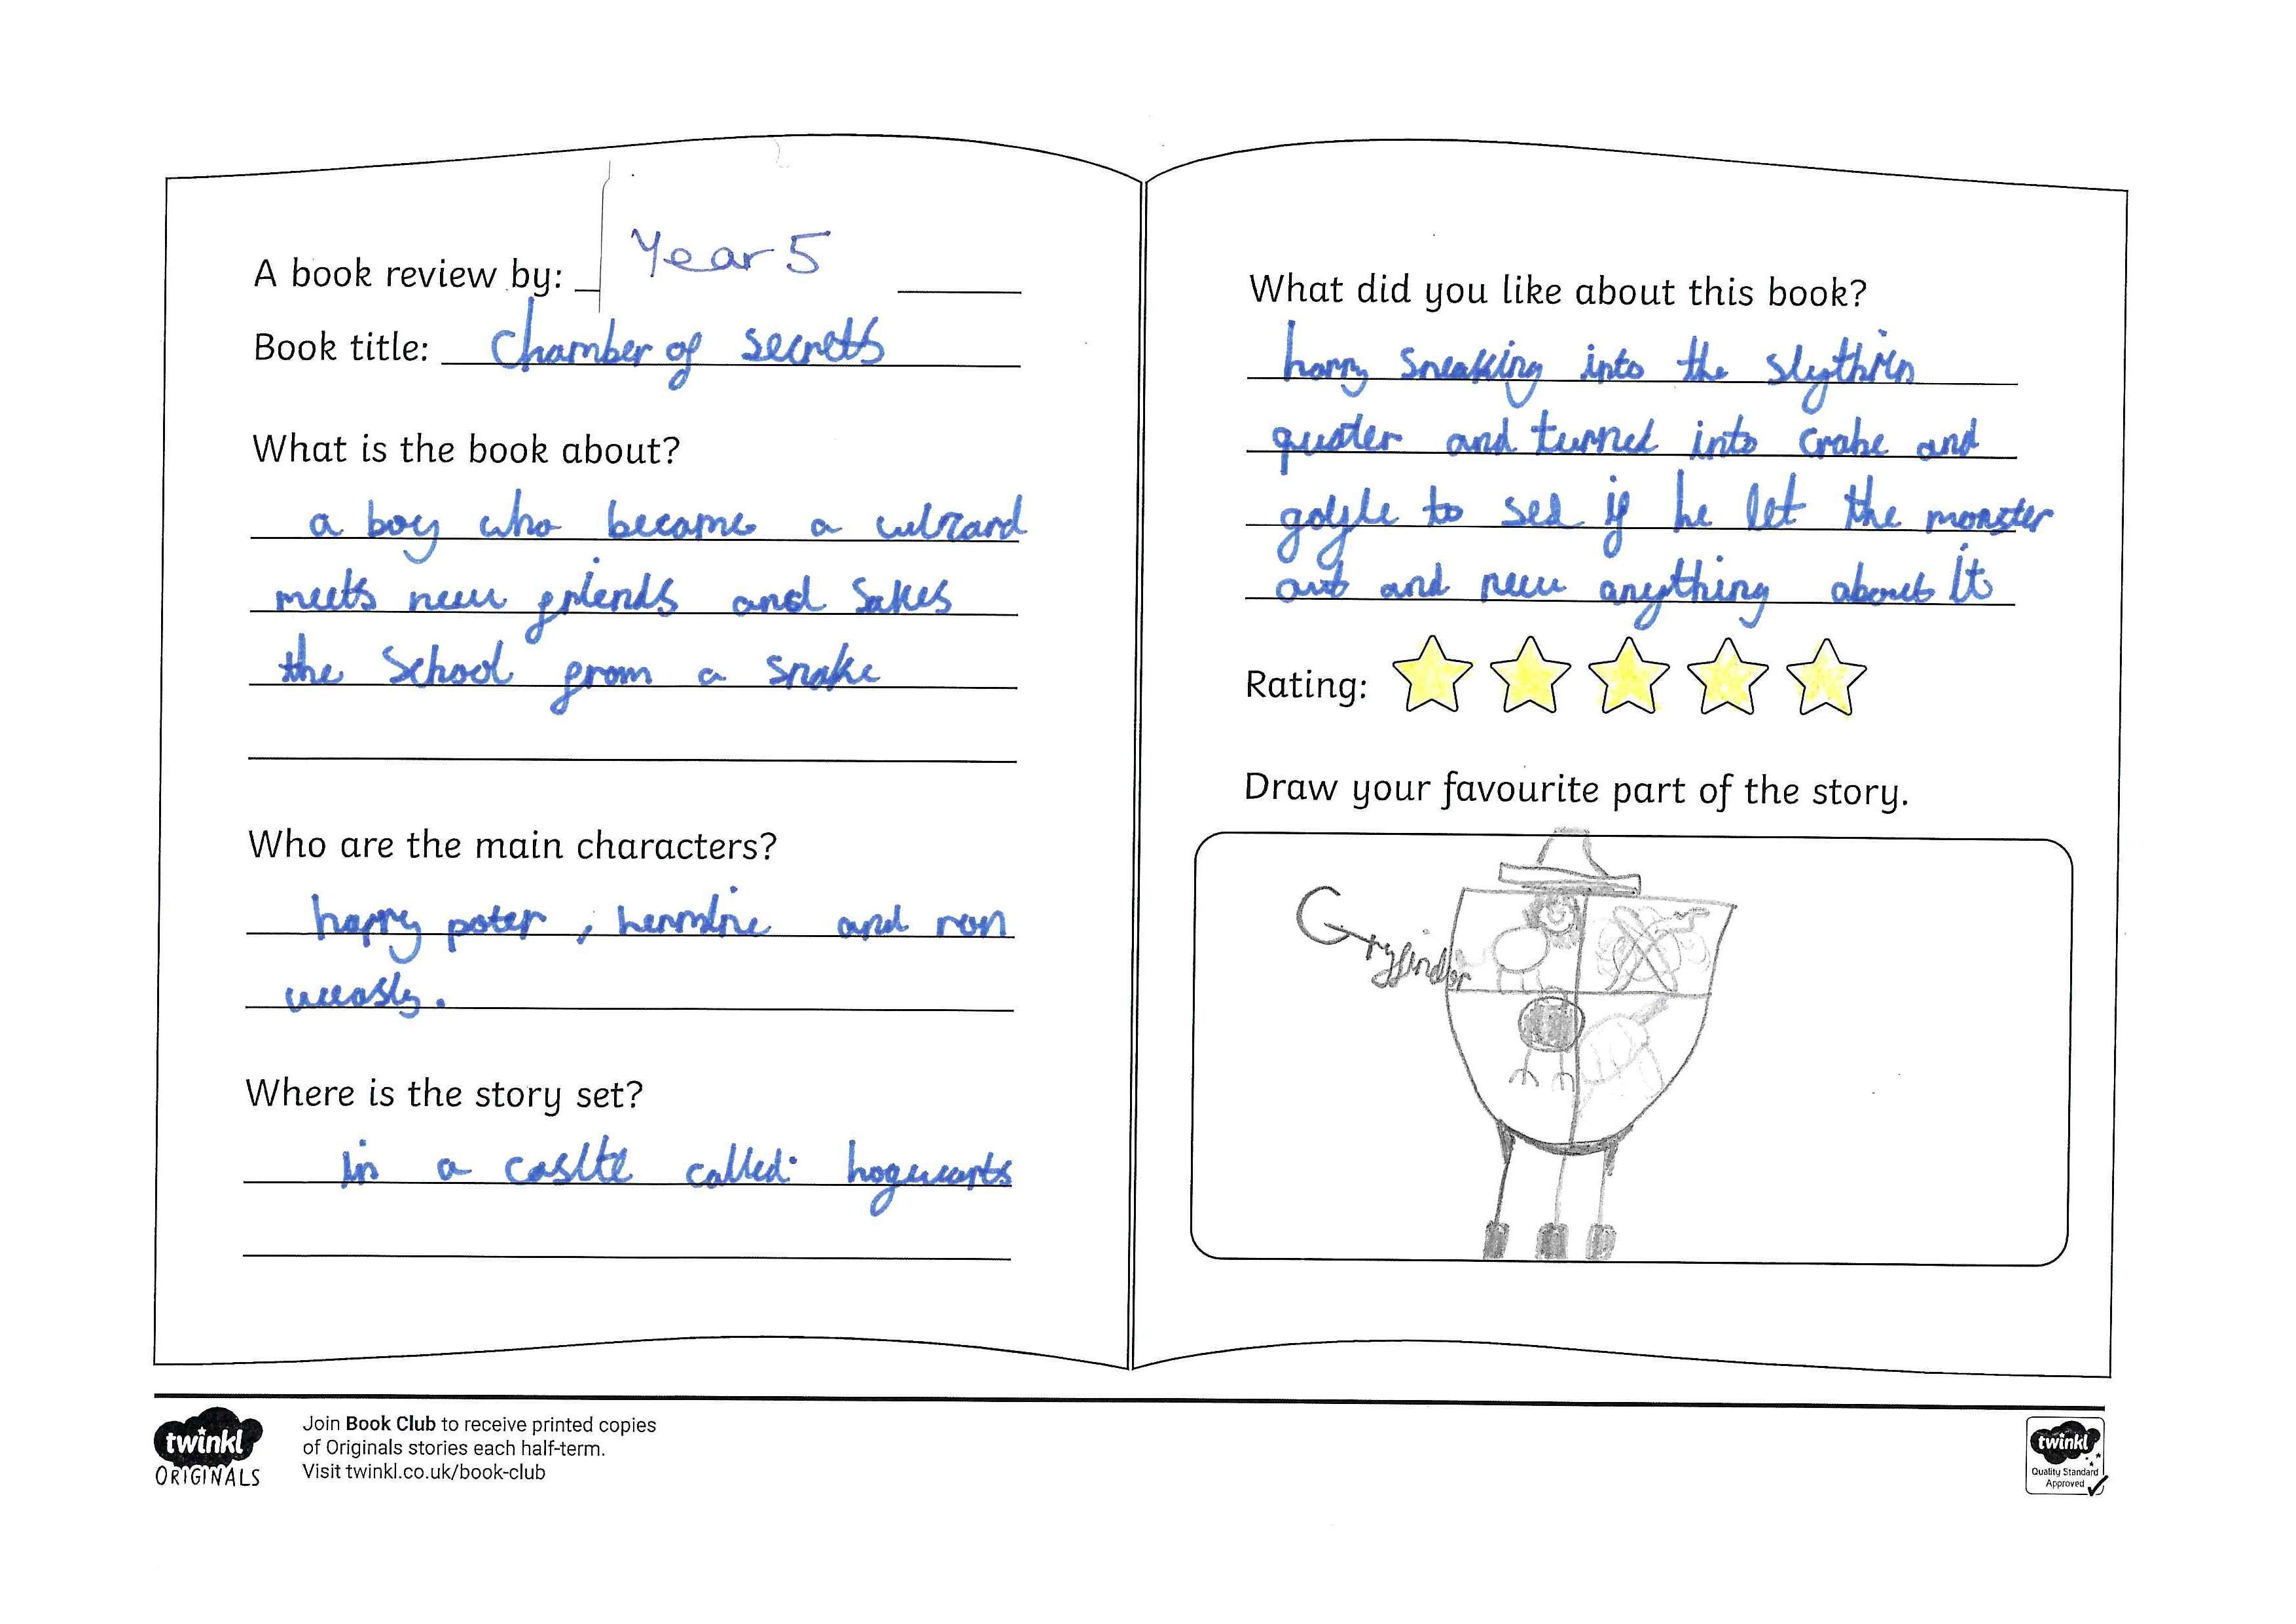 A book review by: Year 5
Book title: Chamber of secretts
What is the book about?
a boy who became a wizard
meets new friends and Sakes
the School from a snake
Who are the main characters?
harry poter, hermine and ron
weasly.
Where is the story set?
in a caslte called hogwarts
What did you like about this book?
harry sneaking into the slythrin
quater and turned into crabe and
goyle to see if he let the monster
out and new anything about It
Rating:
Draw your favourite part of the story.
Gryfindor
twinkl
ORIGINALS
Join Book Club to receive printed copies
of Originals stories each half-term.
Visit twinkl.co.uk/book-club
twinkl
Quality Standard
Approved